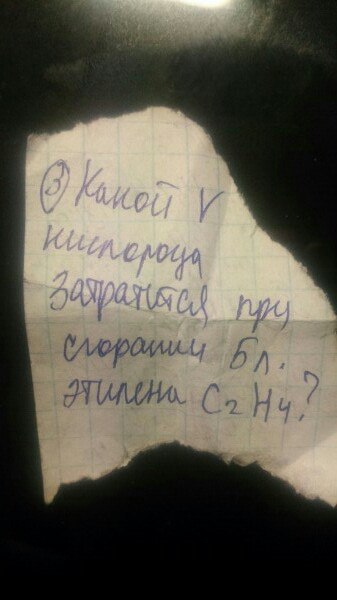 ③ Какой V
кислорода
затратится при
сгорании 5л.
этилена C₂H₄?